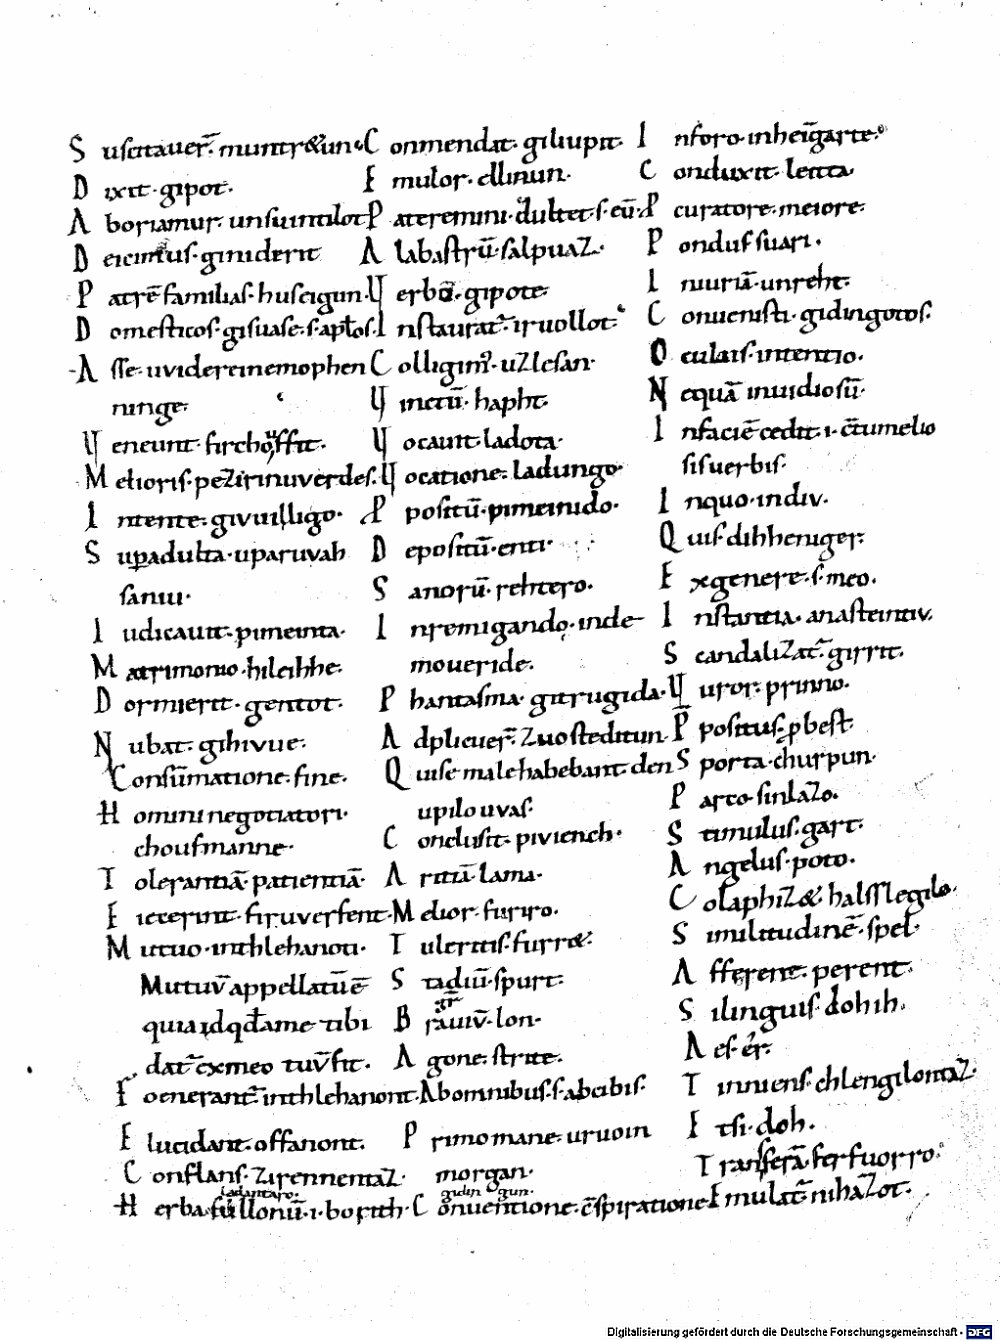 Suscitauer̄. munẗr&un.
Dixit. gipot.
Aboriamur. unsuintilot
Deicimus. giniderit
Patrē familias. huscigun.
Domesticos. gisuase. s. apłos.
Asse. uvidereinemophen
ninge.
Veneunt. firchoufſit.
Melioris. pezirinuverdes.
Intente. givuilligo.
Sup adulta. uparuvah
saniu.
Iudicauit. pimeinta.
Matrimonio. hileihhe.
Dormierit. gentot.
Nubat. gihivue.
Consūmatione. fine.
Homini negotiatori.
choufmanne.
Tolerantiā. patientiā.
Fiecerint. firuverfent.
Mutuo. inthlehanoti.
Mutuv̄ appellatūē
quia idqd̄ame tibi
dat̄ exmeo tuv̄fit.
Foenerant̄ inthlehanont.
Elucidant. offanont.
Conflans. zirennentaz.
ladantaro.
Herba fullonū. i. borith.
Conmendat. giliupit.
Emulor. ellinun.
Pateremini. dultet. s. eū.
Alabastrū. salpuaz.
Verbo. gipote.
Instaurat̄. ir vollot.
Colligim̄. uzlesan.
Vinctū. hapht.
Vocauit. ladota.
Vocatione. ladungo.
Positū. pimeinido.
Depositū. enti.
Sanorū. rehtero.
Inremigando. inde
moueride.
Phantasma. gitrugida.
Adplicuer̄. zuosteditun
Quise male habebant. den
upilo uvas.
Conclusit. piviench.
Aritū. lama.
Melior. furiro.
Tuleritis. furr&.
Stadiū. spurt.
Brauiv̄. lon.
Agone. strite.
Abomnibus. s. abcibis.
Primo mane. uruoin
morgan.
gidin gun.
Conuentione. c̄spiratione
Inforo. inheīgarte.
Conduxit. leitta
Pcuratore. meiore.
Pondus suari.
Iniuriā. unreht.
Conuenisti. gidingotos.
Oculais. intentio.
Nequā inuidiosū.
Infaciē cedit. i. c̄tumelio
sis uerbis.
Inquo. indiv.
Quis dihheniger.
Exgenere. s. meo.
Instantia. anasteintiv.
Scandalizat̄. girrit.
Vuror. prinno.
P̄positus. p̄best
Sporta. churpun.
Parto. sinlazo.
Stimulus. gart.
Angelus. poto.
Colaphiz&. halsslegilo.
Similitudinē. spel.
Afferent. perent.
Silinguis. dohih.
Aes. er.
Tinniens. chlengilontaz.
Etsi. doh.
Transferā. ferfuorro.
Emulat̄. nihazot.